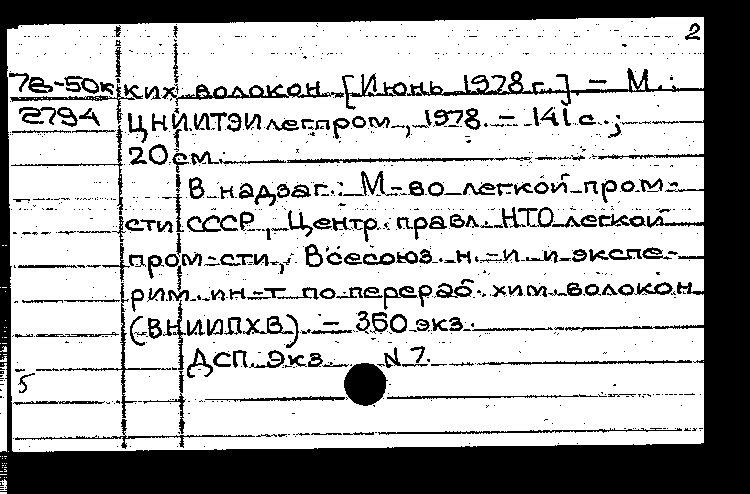 2
78-50к ких волокон [Июнь 1978 г.] – М.:
2794 ЦНИИТЭИлегпром, 1978. – 141 с.;
20 см.
В надзаг.: М-во легкой пром-
сти СССР, Центр. правл. НТО легкой
пром-сти, Всесоюз. н.-и. и экспе-
рим. ин-т по перераб. хим. волокон
(ВНИИПХВ). – 350 экз.
ДСП. Экз. N 7.
5